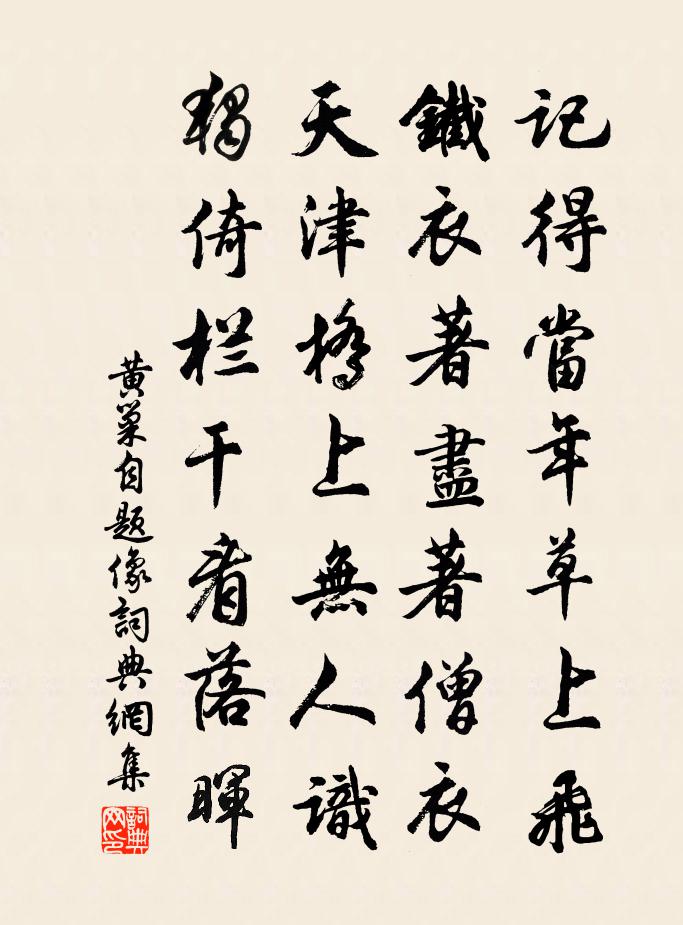 記得當年草上飛
鐵衣著盡著僧衣
天津橋上無人識
獨倚栏干看落暉
黄巢自题像詞典網集
詞典网印